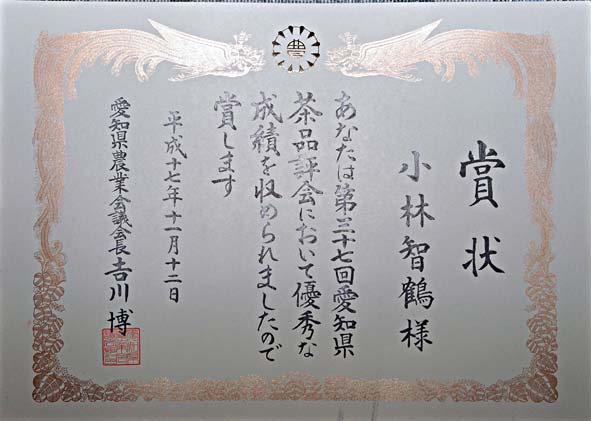 農
賞状
小林智鶴様
あなたは第三十七回愛知県
茶品評会において優秀な
成績を収められましたので
賞します
平成十七年十一月十二日
愛知県農業会議会長吉川博